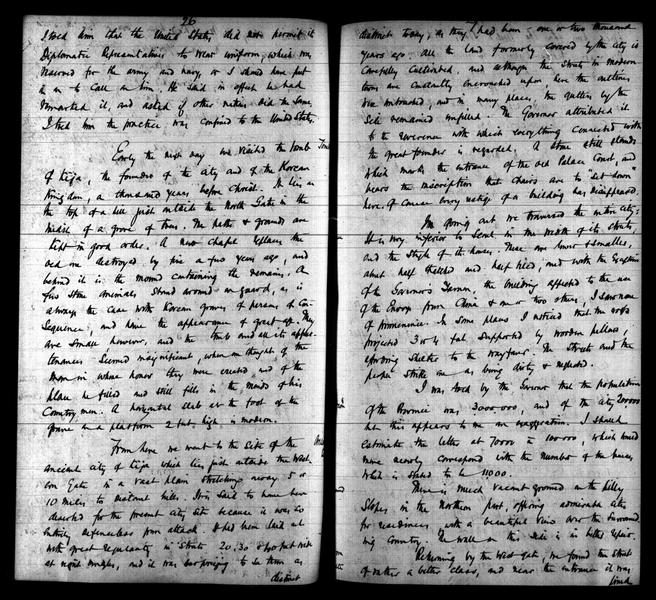 26
I told him that the United States did not permit its
Diplomatic Representatives to wear uniform, which was
reserved for the army and navy, or I should have put
it on to call on him. He said in effect he had
remarked it, and asked if other nations did the same.
I told him the practice was confined to the United States.
Early the next day we visited the tomb
of Kija, the founder of the city and of the Korean
Kingdom, a thousand years before Christ. It lies on
the top of a hill just outside the North Gate in the
midst of a grove of trees. The paths & grounds are
kept in good order. A new chapel replaces the
old one destroyed by fire a few years ago, and
behind it is the mound containing the remains. A
few stone animals stand around on guard, as is
always the case with Korean graves of persons of con-
sequence, and have the appearance of great age. They
are small however, and the tomb and all its appur-
tenances seemed insignificant, when one thought of the
man in whose honor they were erected and of the
place he filled and still fills in the minds of his
countrymen. A horizontal slab at the foot of the
grave on a platform 2 feet high is modern.
From here we went to the site of the
ancient city of Kija which lies just outside the West-
ern Gate in a vast plain stretching away 5 or
10 miles to distant hills. It is said to have been
deserted for the present city site because it was so
entirely defenceless from attack. It had been laid out
with great regularity in streets 20, 30 & 40 feet wide
at right angles, and it was surprising to see them as
distinct
distinct today, as they had been one or two thousand
years ago. All the land formerly covered by the city is
carefully cultivated, and although the streets in modern
towns are constantly encroached upon here the outlines
are untouched, and in many places the gutters by the
side remained unfilled. The Governor attributed it
to the reverence with which everything connected with
the great founder is regarded. A stone still stands
which marks the entrance of the old Palace Court, and
bears the inscription that chairs are to be "set down"
here. Of course every vestige of a building has disappeared.
In going out we traversed the entire city:
It is very inferior to Seoul in the width of its streets,
and the style of its houses. These are lower & smaller,
about half thatched and half tiled, and with the exception
of the Governor's Yamen, the building affected to the use
of the Envoys from China & one or two others, I saw none
of prominence. In some places I noticed that the roofs
projected 3 or 4 feet supported by wooden pillars,
affording shelter to the wayfarer. The streets and the
people strike me as being dirty & neglected.
I was told by the Governor that the population
of the Province was 3000000, and of the city 200000
but this appears to me an exaggeration. I should
estimate the latter at 70000 to 100000, which would
more nearly correspond with the number of the houses,
which is stated to be 11000.
There is much vacant ground on the hilly
slopes in the northern part, offering admirable sites
for residences, with a beautiful view over the surround-
ing country. The wall on this side is in better repair.
Returning by the west gate, we found the street
of rather a better class, and near the entrance it was
lined